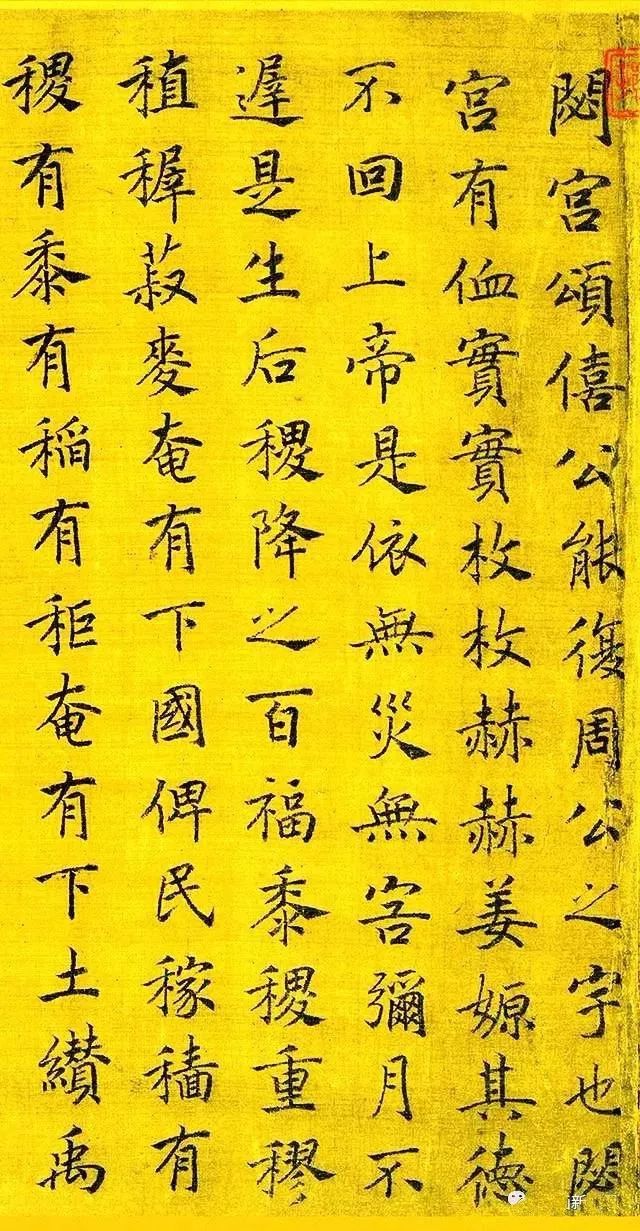 閟宮頌僖公能復周公之宇也閟
宮有侐實實枚枚赫赫姜嫄其德
不回上帝是依無災無害彌月不
遲是生后稷降之百福黍稷重穋
稙稺菽麥奄有下國俾民稼穡有
稷有黍有稻有秬奄有下土纘禹